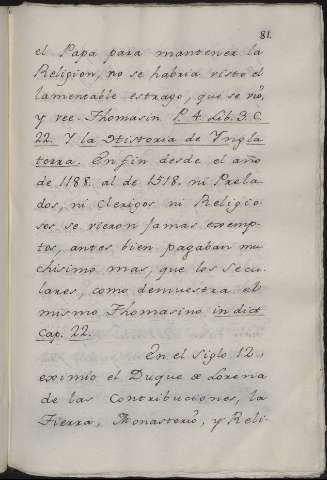 81.
el Papa para mantener la
Religion, no se habria visto el
lamentable estrago, que se vió,
y ree. Thomasin P. 4. Lib. 3. C.
22. Y la Historia de Yngla
terra. En fin desde el año
de 1188. al de 1518. ni Prela
dos, ni Clerigos ni Religio
sos se vieron jamas exemp-
tos, antes bien pagaban mu
chisimo mas, que los Secu-
lares, como demuestra el
mismo Thomasino in dict
Cap. 22.
En el Siglo 12.,
eximio el Duque de Lorena
de las Contribuciones, la
Tierra, Monasterio, y Reli-